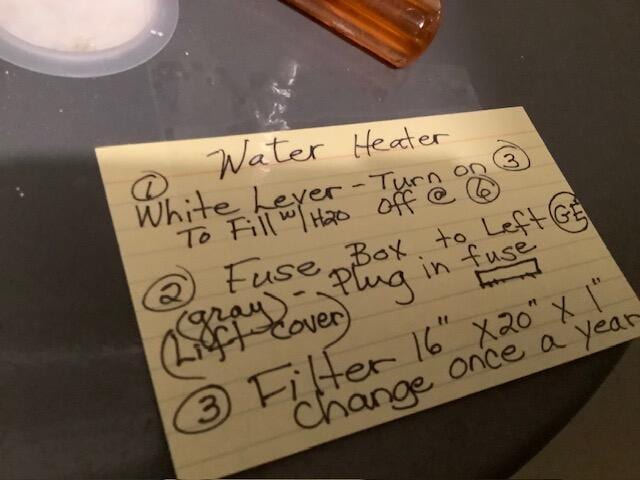 Water Heater
① White Lever - Turn on ③
To Fill w/ H2O Off @ ⑥
② Fuse Box to Left GE
(gray) - Plug in fuse
(Lift cover)
③ Filter 16" X 20" X 1"
Change once a year